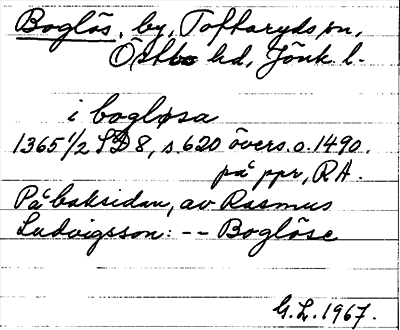 Boglös, by, Toftaryds sn,
Östbo hd, Jönk. l.
i bogløsa
1365 1/2 SD 8, s. 620 övers. o. 1490.
på ppr, RA.
På baksidan, av Rasmus
Ludvigsson: -- Boglöse
G.L. 1967.